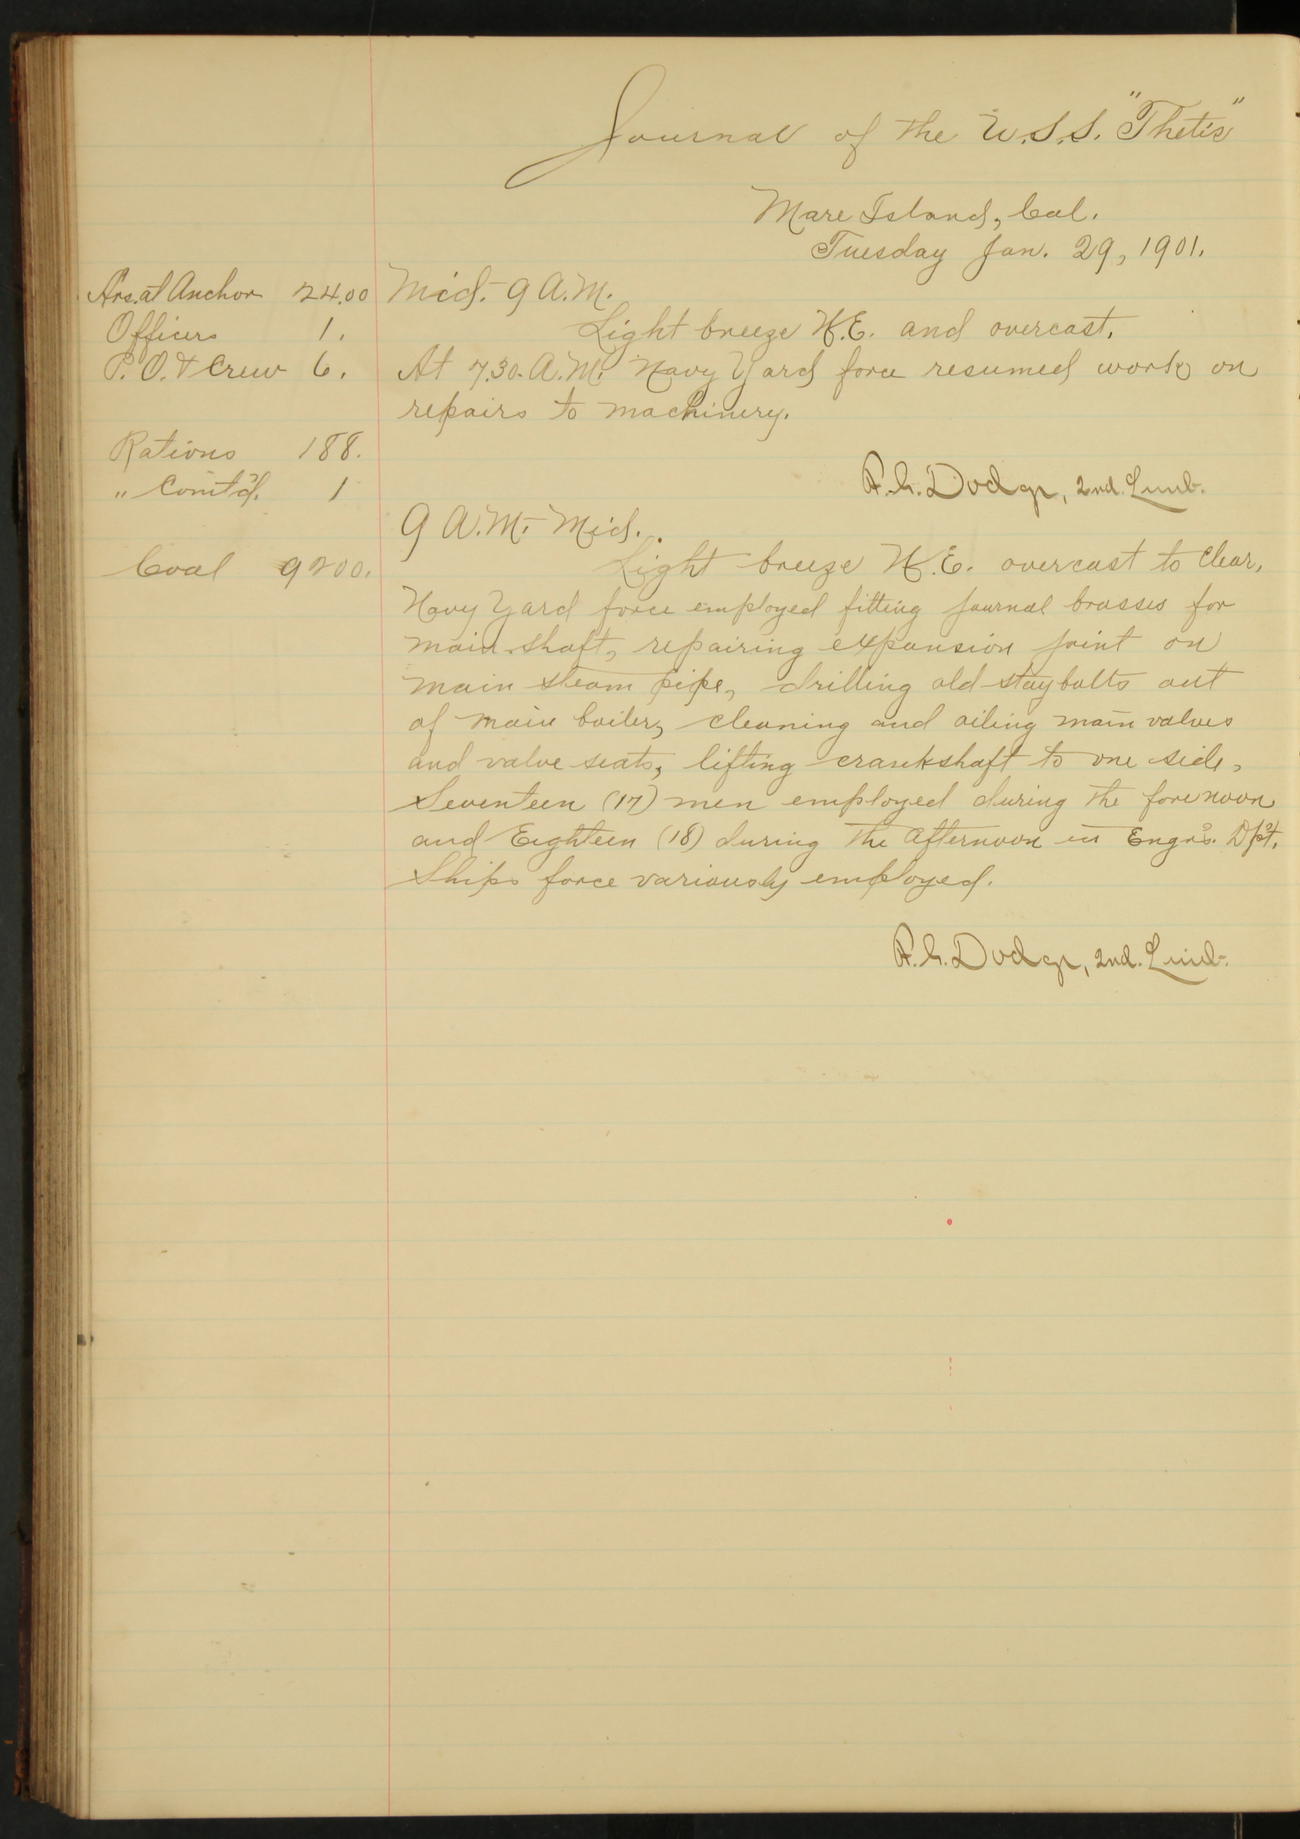 Journal of the U.S.S. "Thetis"
Mare Island, Cal.
Tuesday Jan. 29, 1901.
Hrs. at Anchor 24.00
Officers 1.
P. O. & Crew 6.
Rations 188.
" Comt'd. 1
Coal 9200.
Mid. - 9 A.M.
Light breeze N.E. and overcast.
At 7.30. A.M. Navy Yard force resumed work on
repairs to machinery.
F. G. Dodge, 2nd. Lieut.
9 A.M. - Mid.
Light breeze N.E. overcast to clear,
Navy Yard force employed fitting journal brasses for
main shaft, repairing expansion joint on
main steam pipe, drilling old staybolts out
of main boiler, cleaning and oiling main valves
and valve seats, lifting crankshaft to one side,
Seventeen (17) men employed during the forenoon
and Eighteen (18) during the afternoon in Engrs. Dpt.
Ships force variously employed.
F. G. Dodge, 2nd. Lieut.